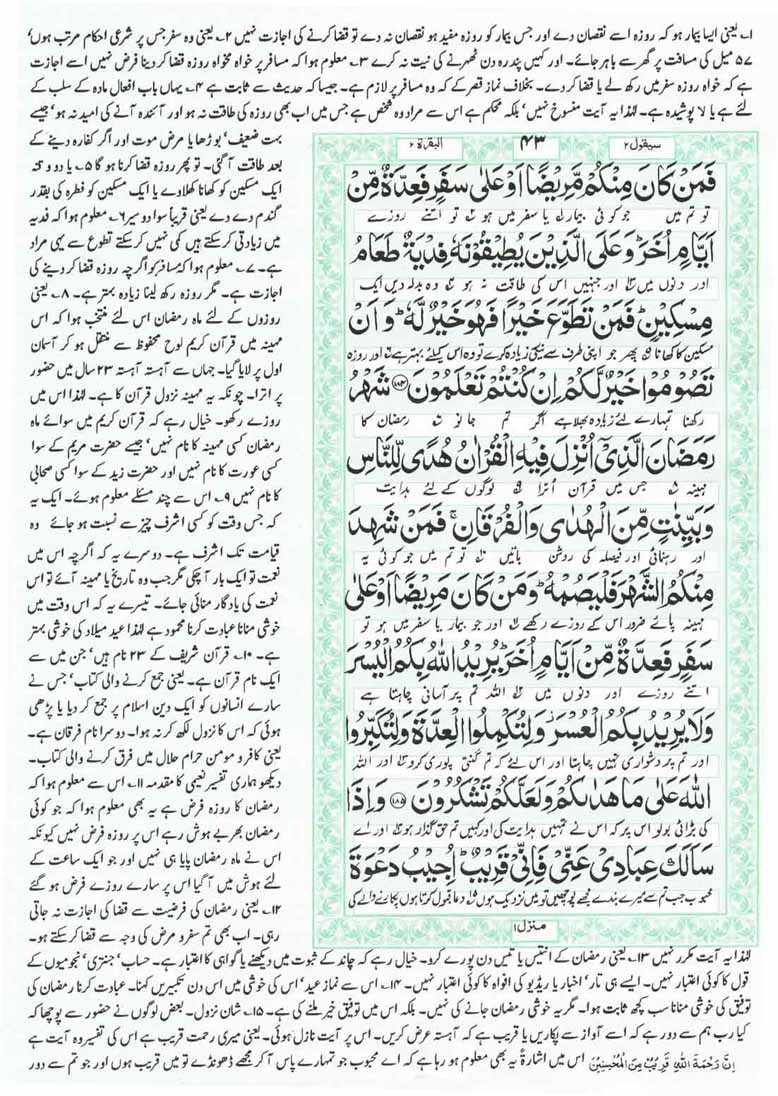 ۱۔ یعنی ایسا بیمار ہو کہ روزہ اسے نقصان دے اور جس بیمار کو روزہ مفید ہو نقصان نہ دے تو قضا کرنے کی اجازت نہیں ۲۔ یعنی وہ سفر جس پر شرعی احکام مرتب ہوں‘
۵۷ میل کی مسافت پر گھر سے باہر جائے۔ اور کہیں پندرہ دن ٹھہرنے کی نیت نہ کرے ۳۔ معلوم ہوا کہ مسافر پر خواہ مخواہ روزہ قضا کر دینا فرض نہیں اسے اجازت
ہے کہ خواہ روزہ سفر میں رکھ لے یا قضا کر دے۔ بخلاف نماز قصر کے کہ وہ مسافر پر لازم ہے۔ جیسا کہ حدیث سے ثابت ہے ۴۔ یہاں باب افعال مادہ کے سلب کے
لئے ہے یا لا پوشیدہ ہے۔ لہٰذا یہ آیت منسوخ نہیں‘ بلکہ محکم ہے اس سے مراد وہ شخص ہے جس میں اب بھی روزہ کی طاقت نہ ہو اور آئندہ آنے کی امید نہ ہو‘ جیسے
سیقول ۲
۴۳
البقرۃ ۲
فَمَنْ كَانَ مِنْكُمْ مَّرِيْضًا اَوْ عَلٰى سَفَرٍ فَعِدَّةٌ مِّنْ
تو تم میں جو کوئی بیمار یا سفر میں ہو تو اتنے روزے
اَيَّامٍ اُخَرَ وَعَلَى الَّذِيْنَ يُطِيْقُوْنَهٗ فِدْيَةٌ طَعَامُ
اور دنوں میں اور جنہیں اس کی طاقت نہ ہو وہ بدلہ دیں ایک
مِسْكِيْنٍ فَمَنْ تَطَوَّعَ خَيْرًا فَهُوَ خَيْرٌ لَّهٗ وَاَنْ
مسکین کا کھانا پھر جو اپنی طرف سے نیکی زیادہ کرے تو وہ اس کیلئے بہتر ہے اور روزہ
تَصُوْمُوْا خَيْرٌ لَّكُمْ اِنْ كُنْتُمْ تَعْلَمُوْنَ ۱۸۴ شَهْرُ
رکھنا تمہارے لئے زیادہ بھلا ہے اگر تم جانو رمضان کا
رَمَضَانَ الَّذِيْٓ اُنْزِلَ فِيْهِ الْقُرْاٰنُ هُدًى لِّلنَّاسِ
مہینہ جس میں قرآن اترا لوگوں کے لئے ہدایت
وَبَيِّنٰتٍ مِّنَ الْهُدٰى وَالْفُرْقَانِ فَمَنْ شَهِدَ
اور رہنمائی اور فیصلہ کی روشن باتیں تو تم میں جو کوئی یہ
مِنْكُمُ الشَّهْرَ فَلْيَصُمْهُ وَمَنْ كَانَ مَرِيْضًا اَوْ عَلٰى
مہینہ پائے ضرور اس کے روزے رکھے اور جو بیمار یا سفر میں ہو تو
سَفَرٍ فَعِدَّةٌ مِّنْ اَيَّامٍ اُخَرَ يُرِيْدُ اللّٰهُ بِكُمُ الْيُسْرَ
اتنے روزے اور دنوں میں اللہ تم پر آسانی چاہتا ہے
وَلَا يُرِيْدُ بِكُمُ الْعُسْرَ وَلِتُكْمِلُوا الْعِدَّةَ وَلِتُكَبِّرُوا
اور تم پر دشواری نہیں چاہتا اور اس لئے کہ تم گنتی پوری کرو اور اللہ
اللّٰهَ عَلٰى مَا هَدٰىكُمْ وَلَعَلَّكُمْ تَشْكُرُوْنَ ۱۸۵ وَاِذَا
کی بڑائی بولو اس پر کہ اس نے تمہیں ہدایت کی اور کہیں تم حق گذار ہو اور اے
سَاَلَكَ عِبَادِيْ عَنِّيْ فَاِنِّيْ قَرِيْبٌ اُجِيْبُ دَعْوَةَ
محبوب جب تم سے میرے بندے مجھے پوچھیں تو میں نزدیک ہوں دعا قبول کرتا ہوں پکارنے والے کی
منزل ۱
بہت ضعیف‘ بوڑھا یا مرض موت اور اگر کفارہ دینے کے
بعد طاقت آگئی۔ تو پھر روزہ قضا کرنا ہو گا ۵۔ یا دو وقتہ
ایک مسکین کو کھانا کھلاوے یا ایک مسکین کو فطرہ کی بقدر
گندم دے دے یعنی قریباً سوا دو سیر ۶۔ معلوم ہوا کہ فدیہ
میں زیادتی کر سکتے ہیں کمی نہیں کر سکتے تطوع سے یہی مراد
ہے۔ ۷۔ معلوم ہوا کہ مسافر کو اگرچہ روزہ قضا کر دینے کی
اجازت ہے۔ مگر روزہ رکھ لینا زیادہ بہتر ہے۔ ۸۔ یعنی
روزوں کے لئے ماہ رمضان اس لئے منتخب ہوا کہ اس
مہینہ میں قرآن کریم لوح محفوظ سے منتقل ہو کر آسمان
اول پر لایا گیا۔ جہاں سے آہستہ آہستہ ۲۳ سال میں حضور
پر اترا۔ چونکہ یہ مہینہ نزول قرآن کا ہے۔ لہٰذا اس میں
روزے رکھو۔ خیال رہے کہ قرآن کریم میں سوائے ماہ
رمضان کسی مہینہ کا نام نہیں‘ جیسے حضرت مریم کے سوا
کسی عورت کا نام نہیں اور حضرت زید کے سوا کسی صحابی
کا نام نہیں ۹۔ اس سے چند مسئلے معلوم ہوئے۔ ایک یہ
کہ جس وقت کو کسی اشرف چیز سے نسبت ہو جائے وہ
قیامت تک اشرف ہے۔ دوسرے یہ کہ اگرچہ اس میں
نعمت تو ایک بار آچکی مگر جب وہ تاریخ یا مہینہ آئے تو اس
نعمت کی یادگار منائی جائے۔ تیسرے یہ کہ اس وقت میں
خوشی منانا عبادت کرنا محمود ہے لہٰذا عید میلاد کی خوشی بہتر
ہے۔ ۱۰۔ قرآن شریف کے ۲۳ نام ہیں‘ جن میں سے
ایک نام قرآن ہے۔ یعنی جمع کرنے والی کتاب‘ جس نے
سارے انسانوں کو ایک دین اسلام پر جمع کر دیا یا پڑھی
ہوئی کہ اس کا نزول لکھ کر نہ ہوا۔ دوسرا نام فرقان ہے۔
یعنی کافر و مومن حرام حلال میں فرق کرنے والی کتاب۔
دیکھو ہماری تفسیر نعیمی کا مقدمہ ۱۱۔ اس سے معلوم ہوا کہ
رمضان کا روزہ فرض ہے یہ بھی معلوم ہوا کہ جو کوئی
رمضان بھر بے ہوش رہے اس پر روزہ فرض نہیں کیونکہ
اس نے ماہ رمضان پایا ہی نہیں اور جو ایک ساعت کے
لئے ہوش میں آگیا اس پر سارے روزے فرض ہو گئے
۱۲۔ یعنی رمضان کی فرضیت سے قضا کی اجازت نہ جاتی
رہی۔ اب بھی تم سفر و مرض کی وجہ سے قضا کر سکتے ہو۔
لہٰذا یہ آیت مکرر نہیں ۱۳۔ یعنی رمضان کے انتیس یا تیس دن پورے کرو۔ خیال رہے کہ چاند کے ثبوت میں دیکھنے یا گواہی کا اعتبار ہے۔ حساب‘ جنتری‘ نجومیوں کے
قول کا کوئی اعتبار نہیں۔ ایسے ہی تار‘ اخبار یا ریڈیو کی افواہ کا کوئی اعتبار نہیں۔ ۱۴۔ اس سے نماز عید‘ اس کی خوشی میں اس دن تکبیریں کہنا۔ عبادت کرنا رمضان کی
توفیق کی خوشی منانا سب کچھ ثابت ہوا۔ مگر یہ خوشی رمضان جانے کی نہیں۔ بلکہ اس میں توفیق خیر ملنے کی ہے۔ ۱۵۔ شان نزول۔ بعض لوگوں نے حضور سے پوچھا کہ
کیا رب ہم سے دور ہے کہ اسے آواز سے پکاریں یا قریب ہے کہ آہستہ عرض کریں۔ اس پر آیت نازل ہوئی۔ یعنی میری رحمت قریب ہے اس کی تفسیر وہ آیت ہے
اِنَّ رَحْمَةَ اللّٰهِ قَرِيْبٌ مِّنَ الْمُحْسِنِيْنَ اس میں اشارۃً یہ بھی معلوم ہو رہا ہے کہ اے محبوب جو تمہارے پاس آ کر مجھے ڈھونڈے تو میں قریب ہوں اور جو تم سے دور